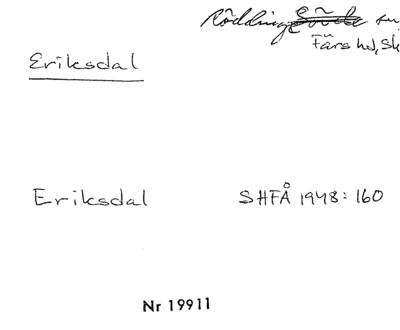 Röddinge sn
Färs hd, Sk
Eriksdal
Eriksdal SHFÅ 1948: 160
Nr 19911